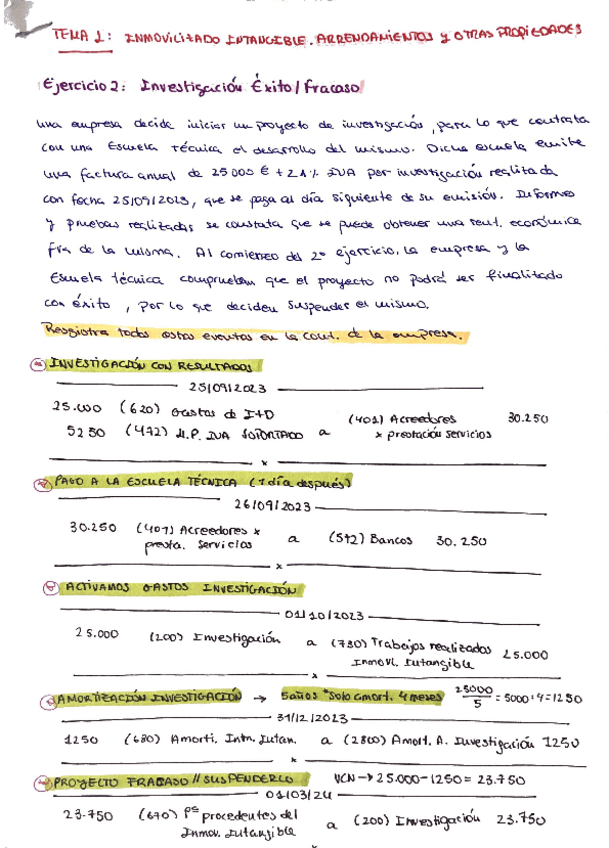 TEMA 1: INMOVILIZADO INTANGIBLE. ARRENDAMIENTOS Y OTRAS PROPIEDADES
Ejercicio 2: Investigación Éxito/Fracaso
Una empresa decide iniciar un proyecto de investigación, para lo que contrata
con una Escuela Técnica el desarrollo del mismo. Dicha escuela emite
una factura anual de 25000 € + 21% IVA por investigación realizada
con fecha 25/09/2023, que se paga al día siguiente de su emisión. Informes
y pruebas realizadas se constata que se puede obtener una rent. económica
fra de la misma. Al comienzo del 2º ejercicio, la empresa y la
Escuela técnica comprueban que el proyecto no podrá ser finalizado
con éxito, por lo que deciden suspender el mismo.
Resgistra todos estos eventos en la cont. de la empresa.
INVESTIGACIÓN CON RESULTADOS
25/09/2023
25.000 (620) Gastos de I+D
(401) Acreedores 30.250
5250 (472) H.P. IVA SOPORTADO a x prestación servicios
x
PAGO A LA ESCUELA TÉCNICA (1 día después)
26/09/2023
30.250 (401) Acreedores x a (572) Bancos 30.250
presta. servicios
x
ACTIVAMOS GASTOS INVESTIGACIÓN
01/10/2023
25.000 (200) Investigación a (730) Trabajos realizados 25.000
Inmovi. Intangible
x
AMORTIZACIÓN INVESTIGACIÓN → 5años *Solo amort. 4 meses 25000/5 = 5000:4=1250
31/12/2023
1250 (680) Amorti. Inm. Intan. a (2800) Amort. A. Investigación 1250
x
PROYECTO FRACASO // SUSPENDERLO VCN → 25.000-1250 = 23.750
01/03/24
23.750 (670) Pªˢ procedentes del a (200) Investigación 23.750
Inmov. Intangible
x